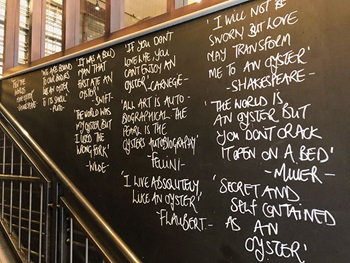 OYSTER'
'WE ARE BOUND
TO OUR BODIES
LIKE AN OYSTER
IS TO ITS SHELL'
-PLATO-
'IT WAS A BOLD
MAN THAT
FIRST ATE AN
OYSTER'
-SWIFT-
'THE WORLD WAS
MY OYSTER BUT
I USED THE
WRONG FORK'
-WILDE-
'IF YOU DON'T
LOVE LIFE YOU
CAN'T ENJOY AN
OYSTER'
-CARNEGIE-
'ALL ART IS AUTO-
BIOGRAPHICAL-THE
PEARL IS THE
OYSTERS AUTOBIOGRAPHY'
-FELLINI-
'I LIVE ABSOLUTELY,
LIKE AN OYSTER'
-FLAUBERT-
'I WILL NOT BE
SWORN BUT LOVE
MAY TRANSFORM
ME TO AN OYSTER'
-SHAKESPEARE-
'THE WORLD IS
AN OYSTER BUT
YOU DON'T CRACK
IT OPEN ON A BED'
-MILLER-
'SECRET AND
SELF CONTAINED
AS AN
OYSTER'